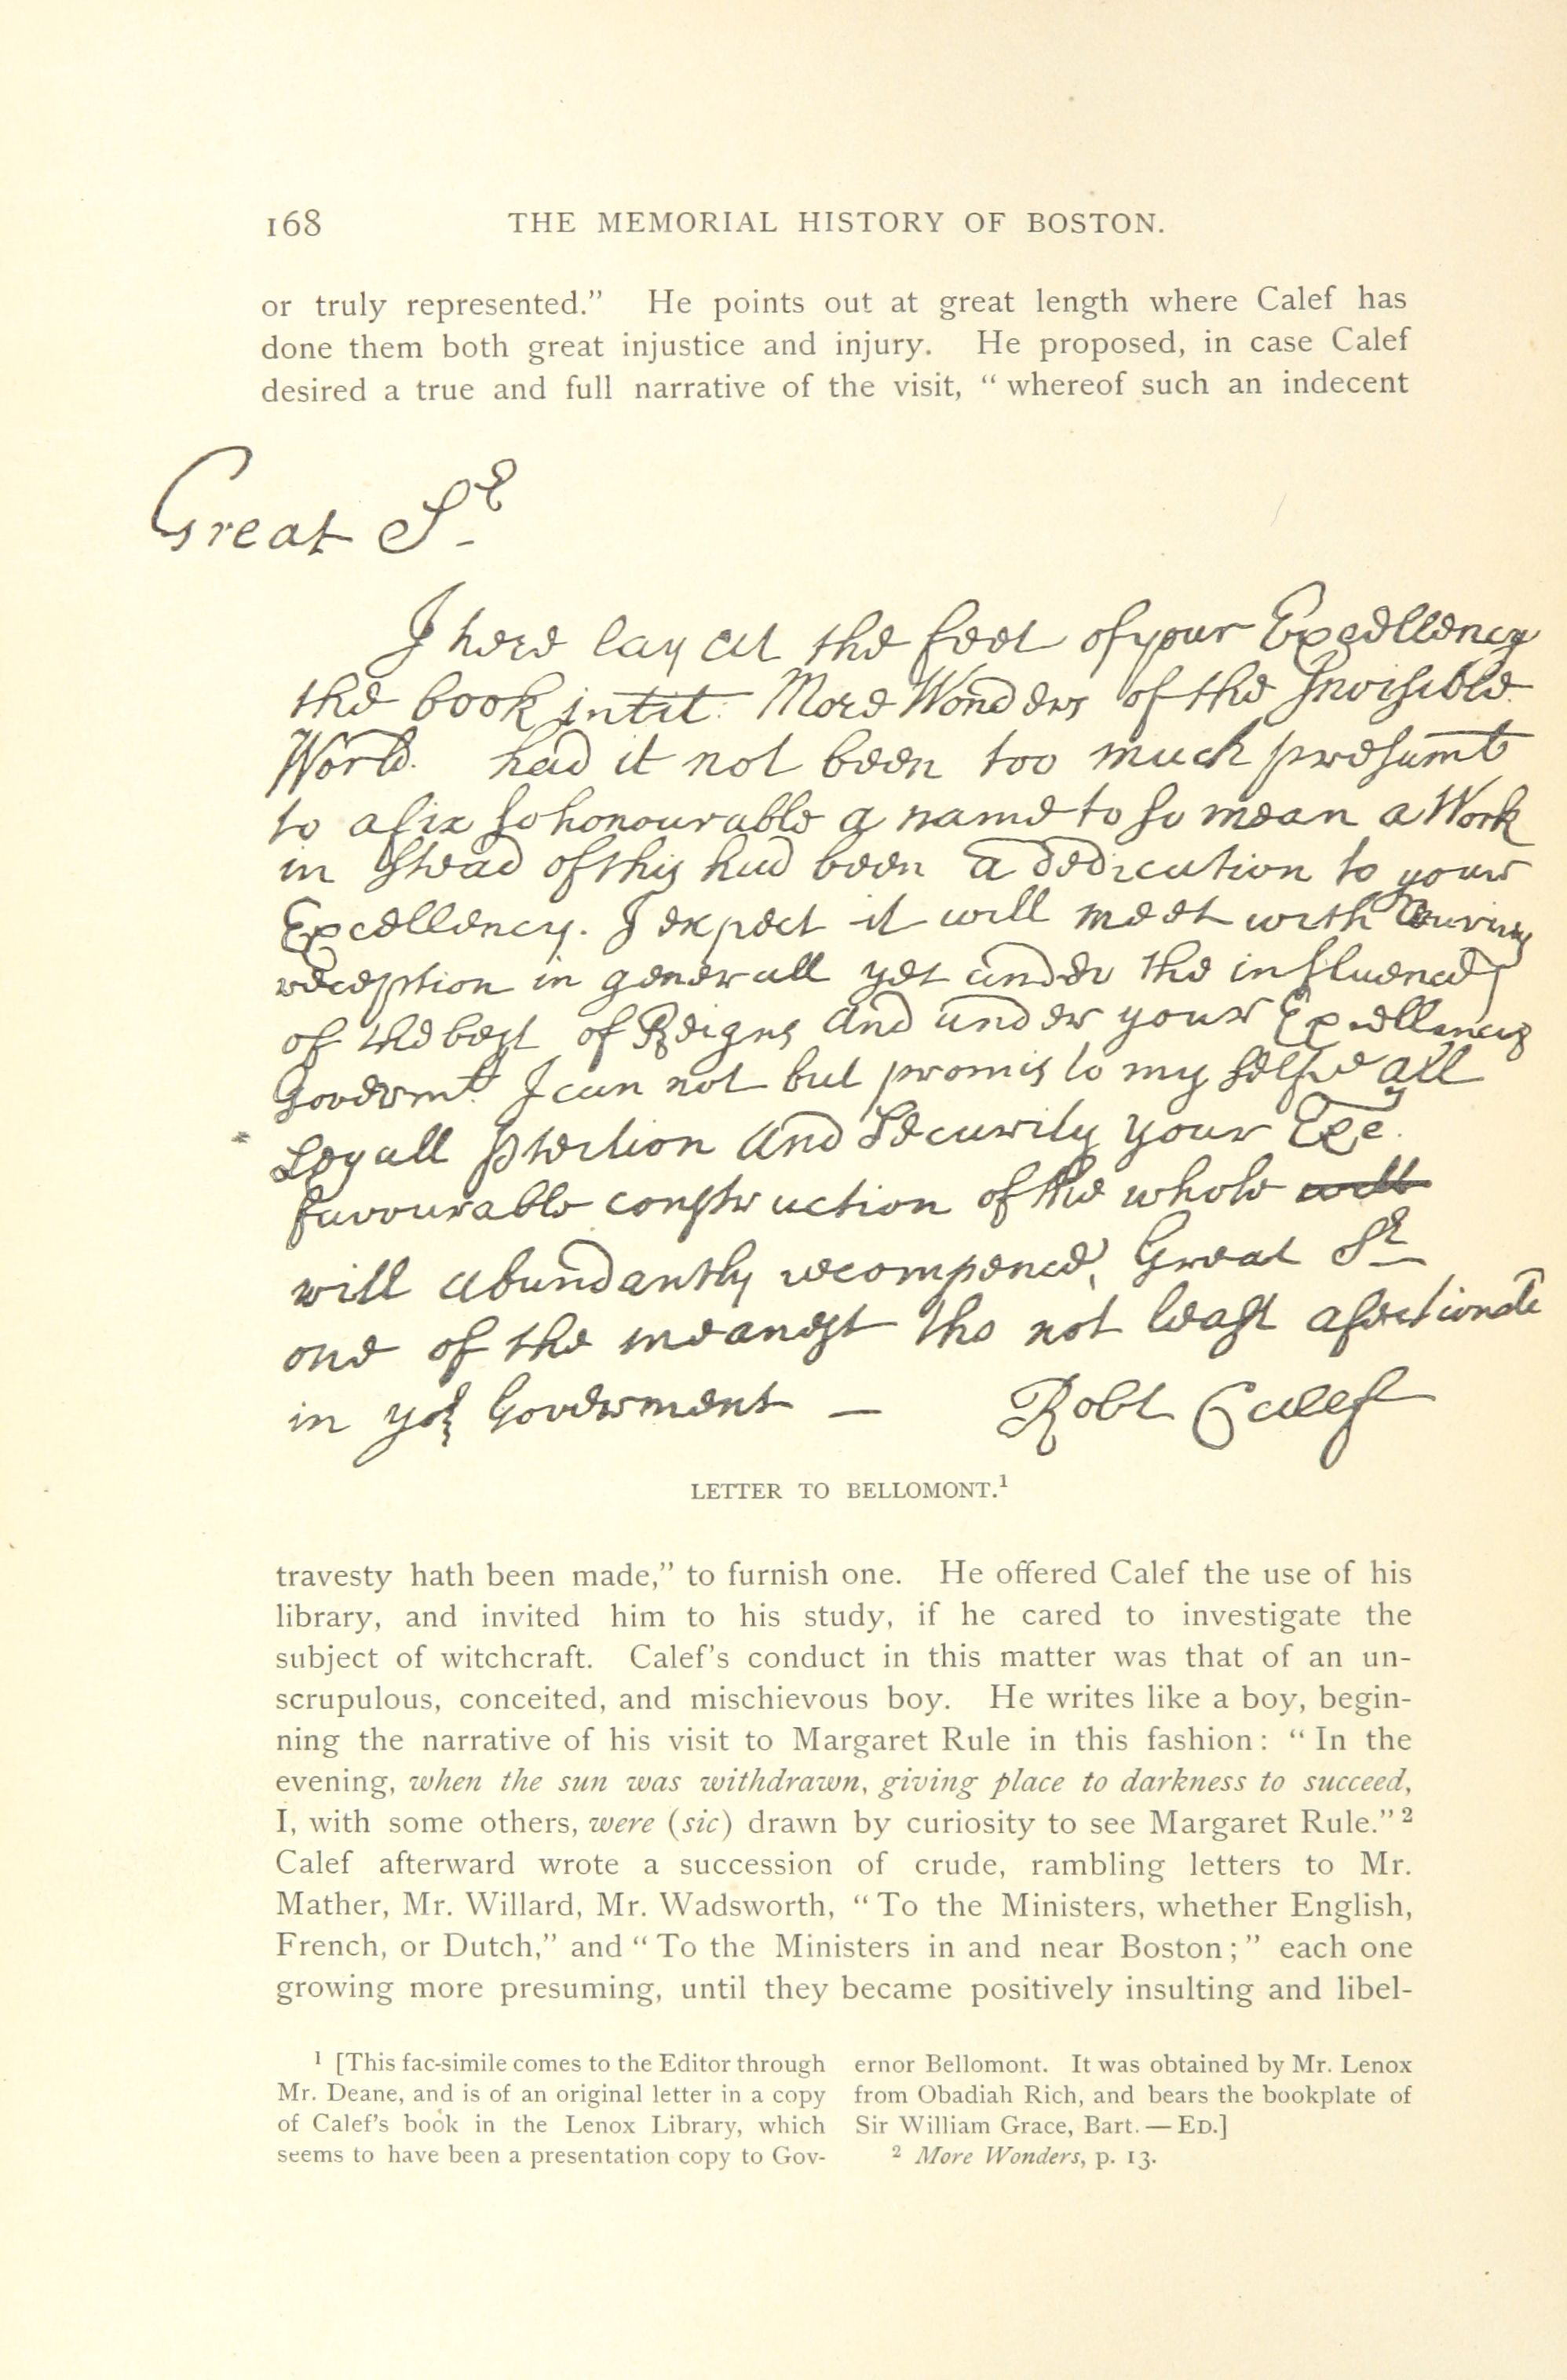 168 THE MEMORIAL HISTORY OF BOSTON.
or truly represented.” He points out at great length where Calef has
done them both great injustice and injury. He proposed, in case Calef
desired a true and full narrative of the visit, “ whereof such an indecent
Great Sr
I here lay at the feet of your Excellency
the book intit: More Wonders of the Invisible
World. had it not been too much presumt
to afix so honourable a name to so mean a Work
in stead of this had been a dedication to your
Excellency. I expect it will meet with
reception in generall yet under the influence
of the best of Reigns and under your Excellencys
Goverm.t I can not but promis to my selfe all
Legall ptection and Security your Exc.
favourable construction of the whole will
will abundantly recompence, Great Sr
one of the meanest tho not least afectionate
in yor Goverment — Robt Calef
LETTER TO BELLOMONT.1
travesty hath been made,” to furnish one. He offered Calef the use of his
library, and invited him to his study, if he cared to investigate the
subject of witchcraft. Calef’s conduct in this matter was that of an un-
scrupulous, conceited, and mischievous boy. He writes like a boy, begin-
ning the narrative of his visit to Margaret Rule in this fashion: “ In the
evening, when the sun was withdrawn, giving place to darkness to succeed,
I, with some others, were (sic) drawn by curiosity to see Margaret Rule.” 2
Calef afterward wrote a succession of crude, rambling letters to Mr.
Mather, Mr. Willard, Mr. Wadsworth, “ To the Ministers, whether English,
French, or Dutch,” and “ To the Ministers in and near Boston;” each one
growing more presuming, until they became positively insulting and libel-
1 [This fac-simile comes to the Editor through
Mr. Deane, and is of an original letter in a copy
of Calef’s book in the Lenox Library, which
seems to have been a presentation copy to Gov-
ernor Bellomont. It was obtained by Mr. Lenox
from Obadiah Rich, and bears the bookplate of
Sir William Grace, Bart. — ED.]
2 More Wonders, p. 13.